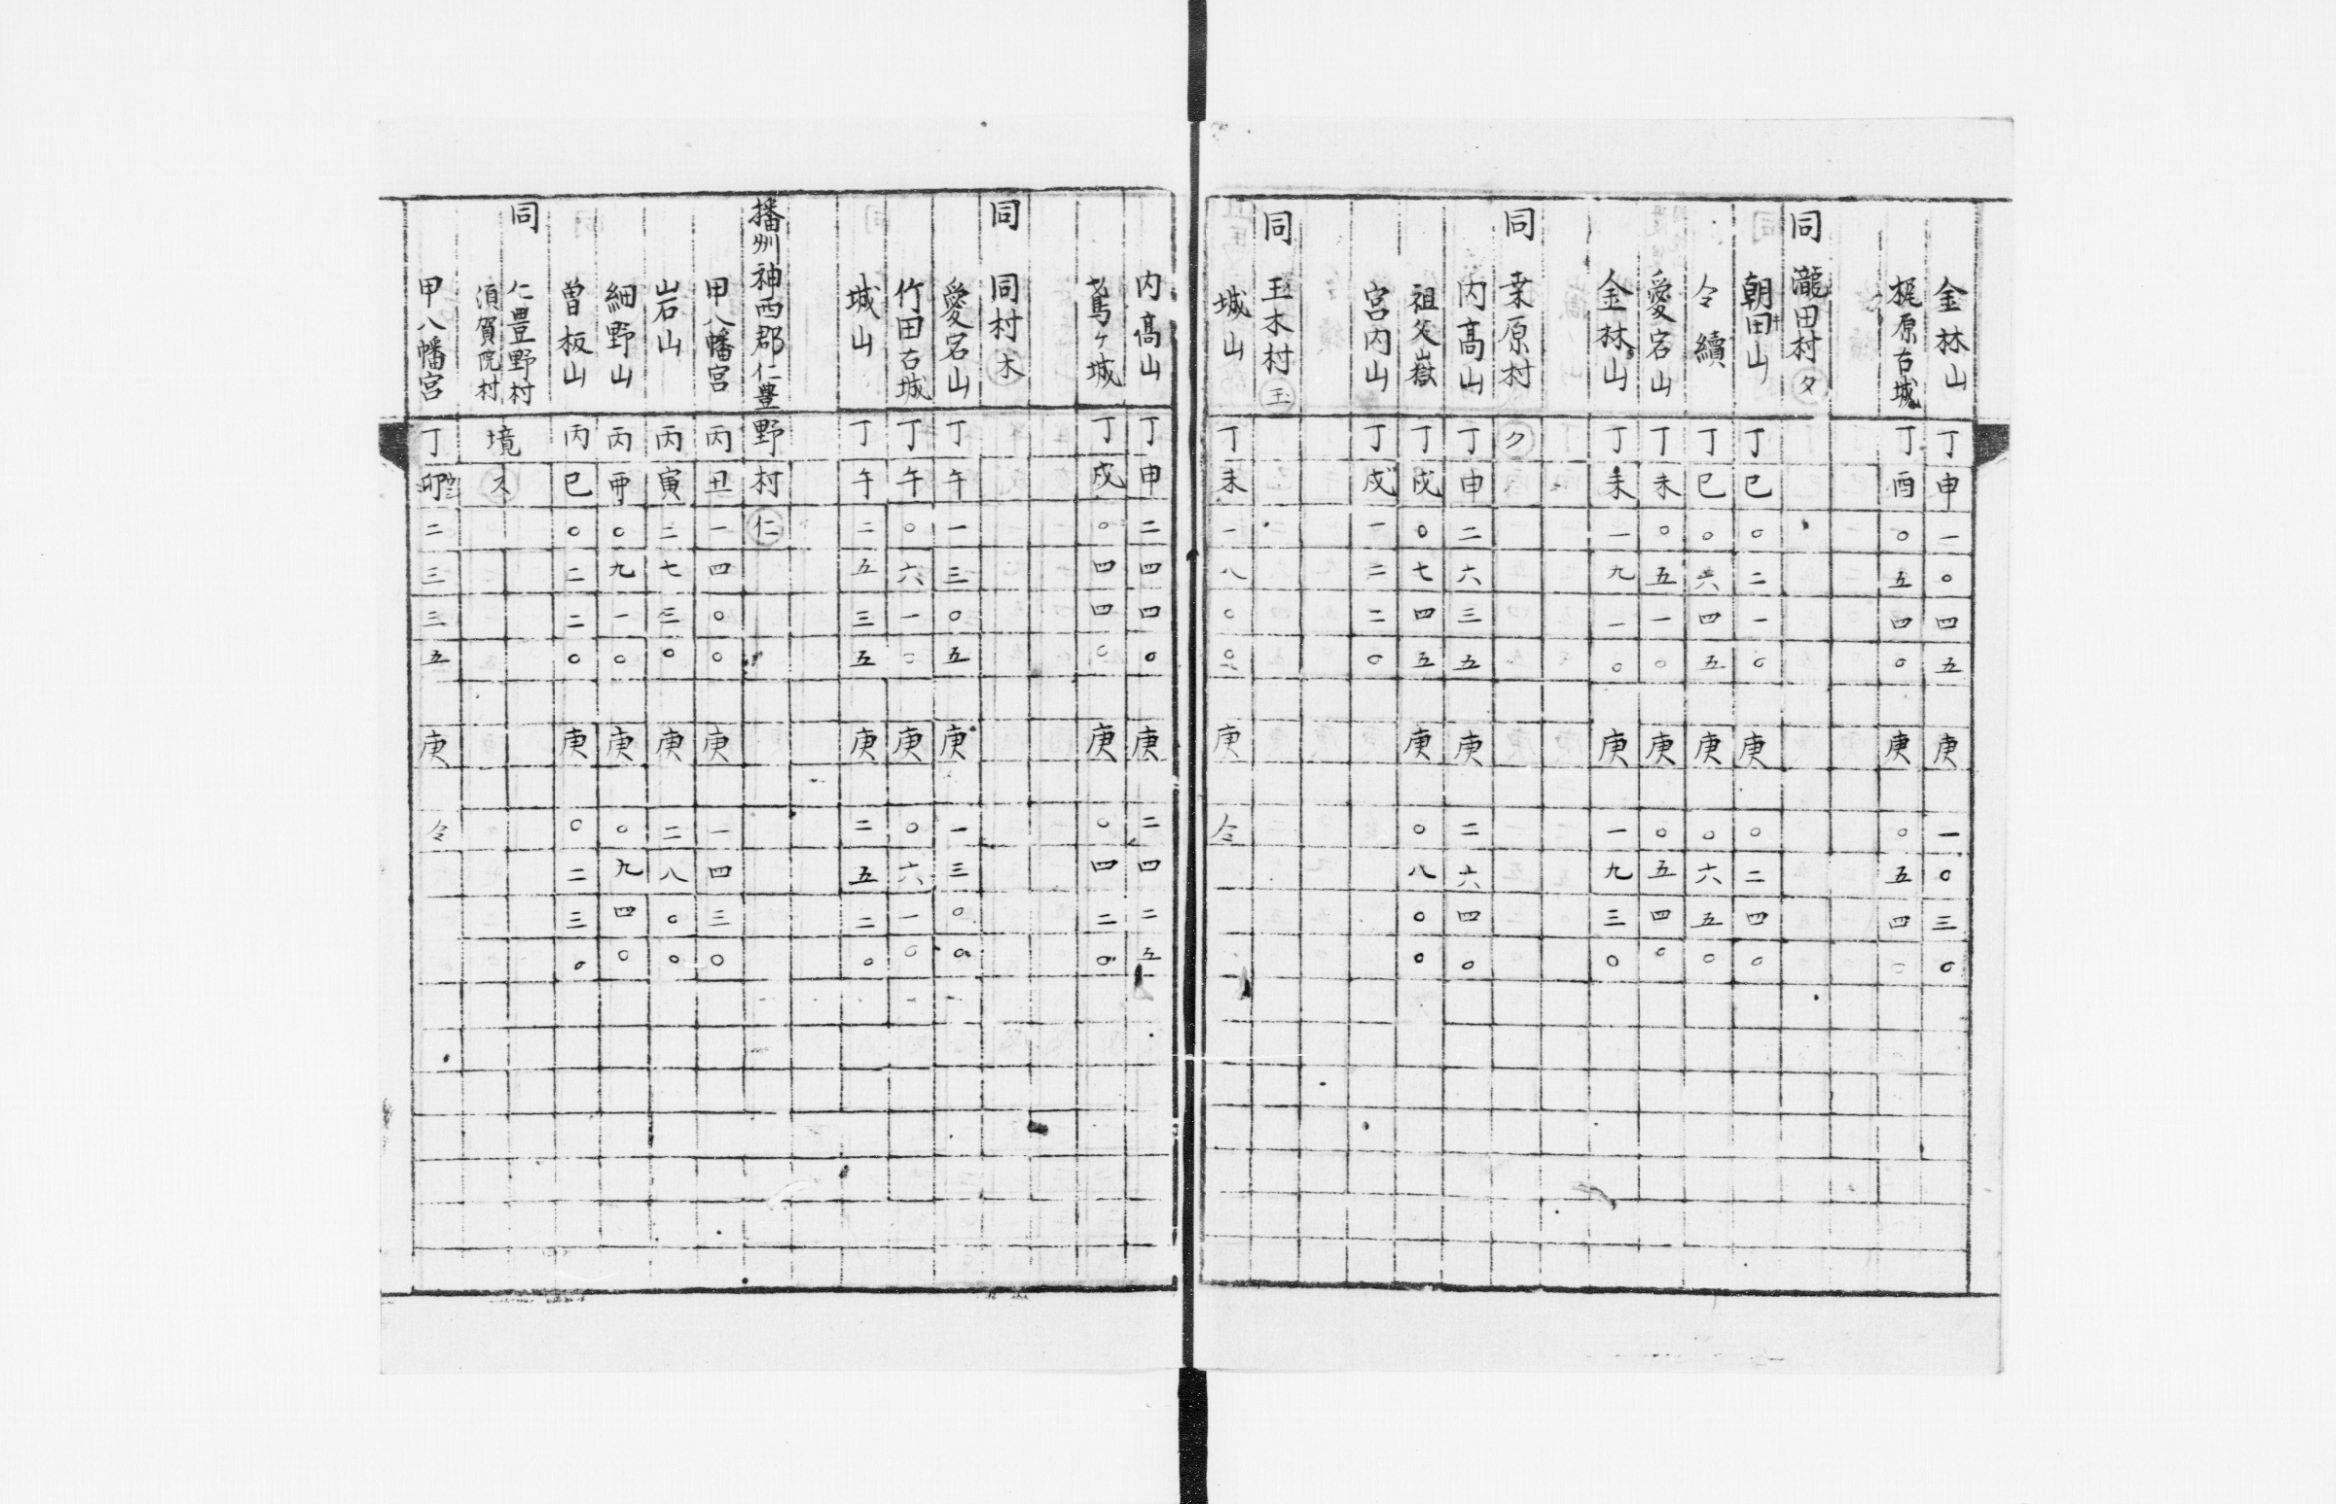 金林山 丁申一〇四五 庚一〇三〇
梶原古城 丁酉〇五四〇 庚〇五四〇
同 瀧田村 タ
朝田山 丁巳〇二一〇 庚〇二四〇
仝續 丁巳〇六四五 庚〇六五〇
愛宕山 丁未〇五一〇 庚〇五四〇
金林山 丁未一九一〇 庚一九三〇
同 桒原村 ク
内髙山 丁申二六三五 庚二六四〇
祖父嶽 丁戌〇七四五 庚〇八〇〇
宮内山 丁戌一二二〇
同 玉木村 玉
城山 丁未一八〇〇 庚仝
内髙山 丁申二四四〇 庚二四二五
丁戌〇四四〇 庚〇四二〇
同 同村 木
愛宕山 丁午一三〇五 庚一三〇〇
竹田古城 丁午〇六一〇 庚〇六一〇
城山 丁午二五三五 庚二五二〇
播州神西郡仁豊野村 仁
甲八幡宮 丙丑一四〇〇 庚一四三〇
岩山 丙寅二七三〇 庚二八〇〇
細野山 丙〇九一〇 庚〇九四〇
曽板山 丙巳〇二二〇 庚〇二三〇
同 仁豊野村
須賀院村 境 ス
甲八幡宮 丁卯二三三五 庚仝